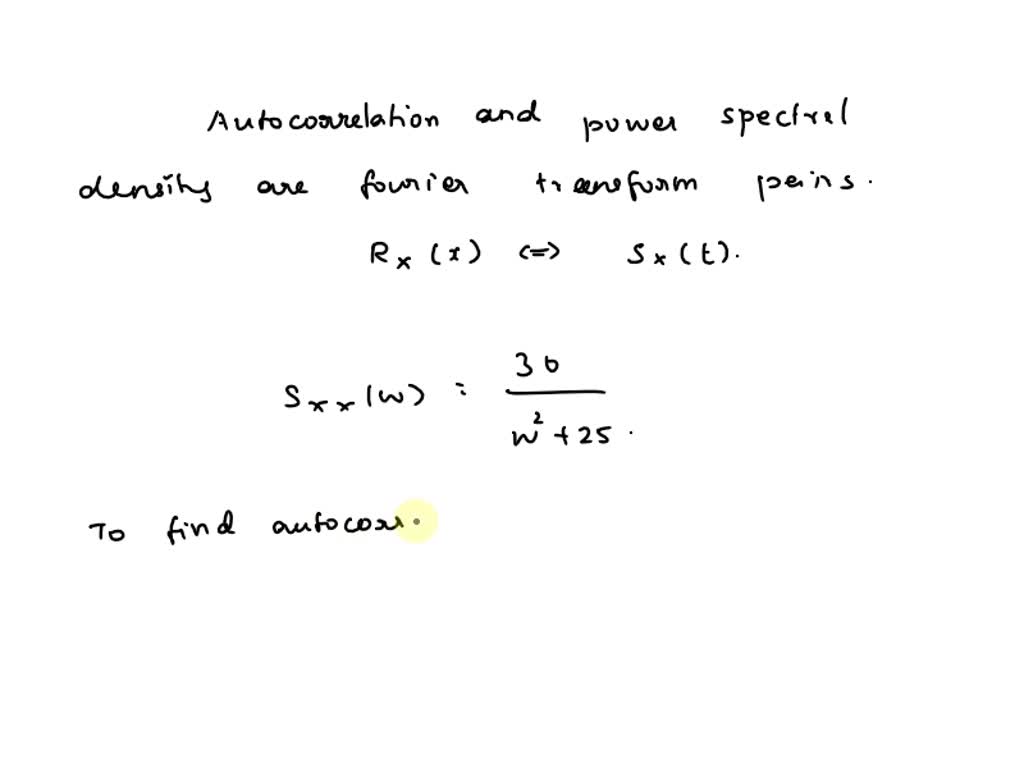 Autocorrelation and power spectral
density are fourier transform pairs.
Rx (τ) <=> Sx (t).
Sxx (w) = 30
w² + 25.
To find autocorr